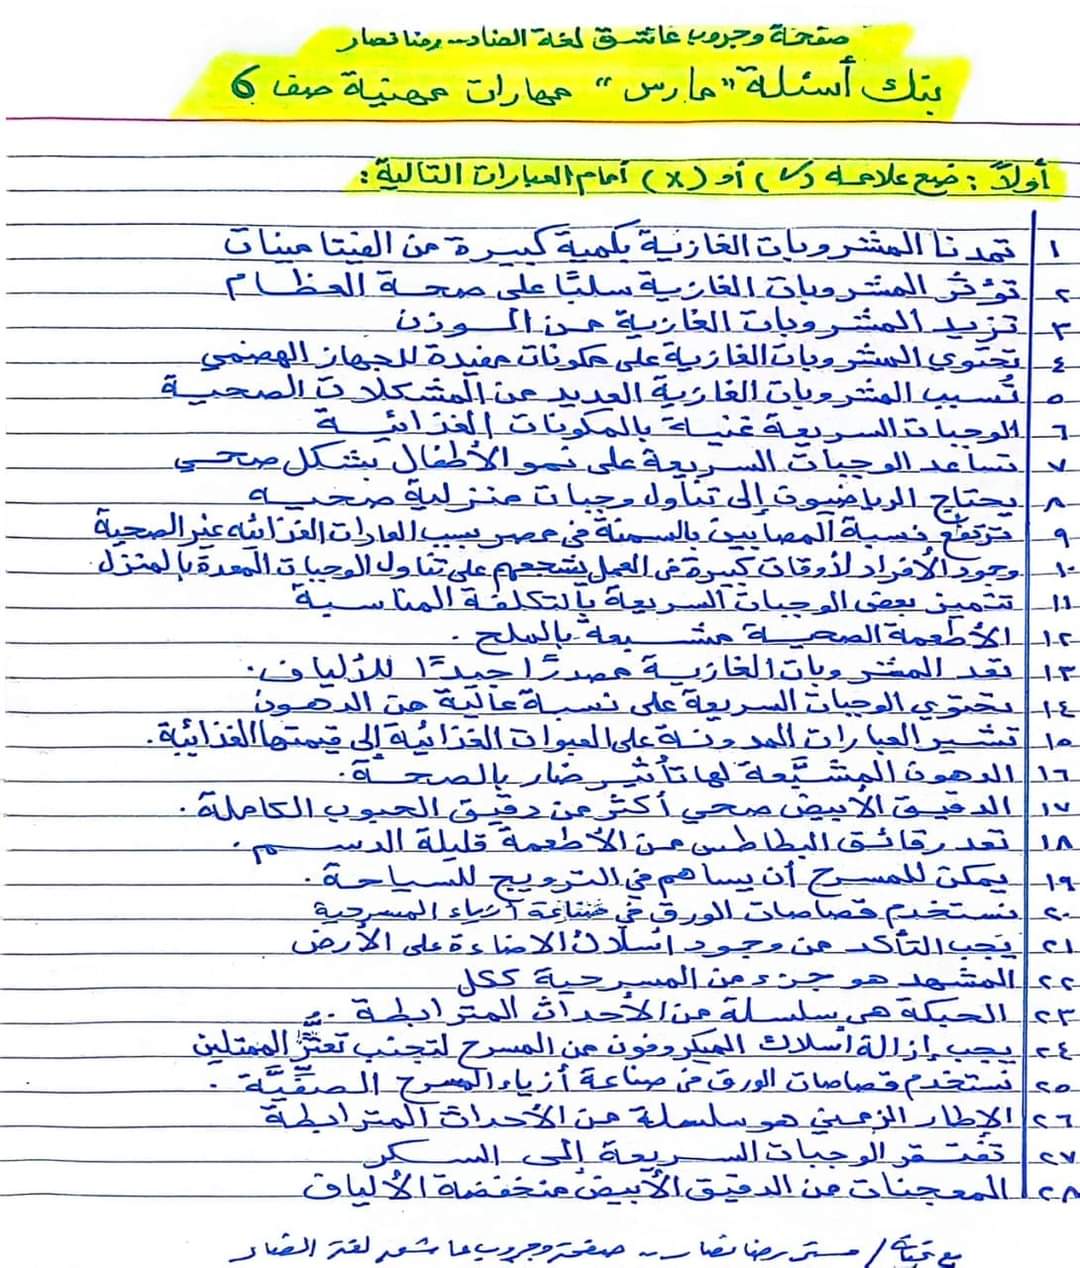 صفحة وجروب عاشق لغة الضاد - رضا نصار
بنك أسئلة "مارس" مهارات مهنية صف 6
أولاً : ضع علامة (✓) أو (x) أمام العبارات التالية :
١ تمدنا المشروبات الغازية بكمية كبيرة من الفيتامينات
٢ تؤثر المشروبات الغازية سلبًا على صحة العظام
٣ تزيد المشروبات الغازية من الوزن
٤ تحتوي المشروبات الغازية على مكونات مفيدة للجهاز الهضمي
٥ تُسبب المشروبات الغازية العديد من المشكلات الصحية
٦ الوجبات السريعة غنية بالمكونات الغذائية
٧ تساعد الوجبات السريعة على نمو الأطفال بشكل صحي
٨ يحتاج الرياضيون إلى تناول وجبات منزلية صحية
٩ ترتفع نسبة المصابين بالسمنة في مصر بسبب العادات الغذائية غير الصحية
١٠ وجود الأفراد لأوقات كبيرة في العمل يشجعهم على تناول الوجبات المعدة بالمنزل
١١ تتميز بعض الوجبات السريعة بالتكلفة المناسبة
١٢ الأطعمة الصحية مشبعة بالملح .
١٣ تعد المشروبات الغازية مصدرًا جيدًا للألياف .
١٤ تحتوي الوجبات السريعة على نسبة عالية من الدهون
١٥ تشير العبارات المدونة على العبوات الغذائية إلى قيمتها الغذائية .
١٦ الدهون المشبَّعة لها تأثير ضار بالصحة .
١٧ الدقيق الأبيض صحي أكثر من دقيق الحبوب الكاملة .
١٨ تعد رقائق البطاطس من الأطعمة قليلة الدسم .
١٩ يمكن للمسرح أن يساهم في الترويج للسياحة .
٢٠ نستخدم قصاصات الورق في صناعة أزياء المسرحية
٢١ يجب التأكد من وجود أسلاك الاضاءة على الأرض
٢٢ المشهد هو جزء من المسرحية ككل
٢٣ الحبكة هي سلسلة من الأحداث المترابطة .
٢٤ يجب إزالة أسلاك الميكروفون من المسرح لتجنب تعثُّر الممثلين
٢٥ نستخدم قصاصات الورق في صناعة أزياء المسرح الصفِّيَّة .
٢٦ الإطار الزمني هو سلسلة من الأحداث المترابطة
٢٧ تفتقر الوجبات السريعة إلى السكر
٢٨ المعجنات من الدقيق الأبيض منخفضة الألياف
مع تحيات / مستر رضا نصار - صفحة وجروب عاشق لغة الضاد